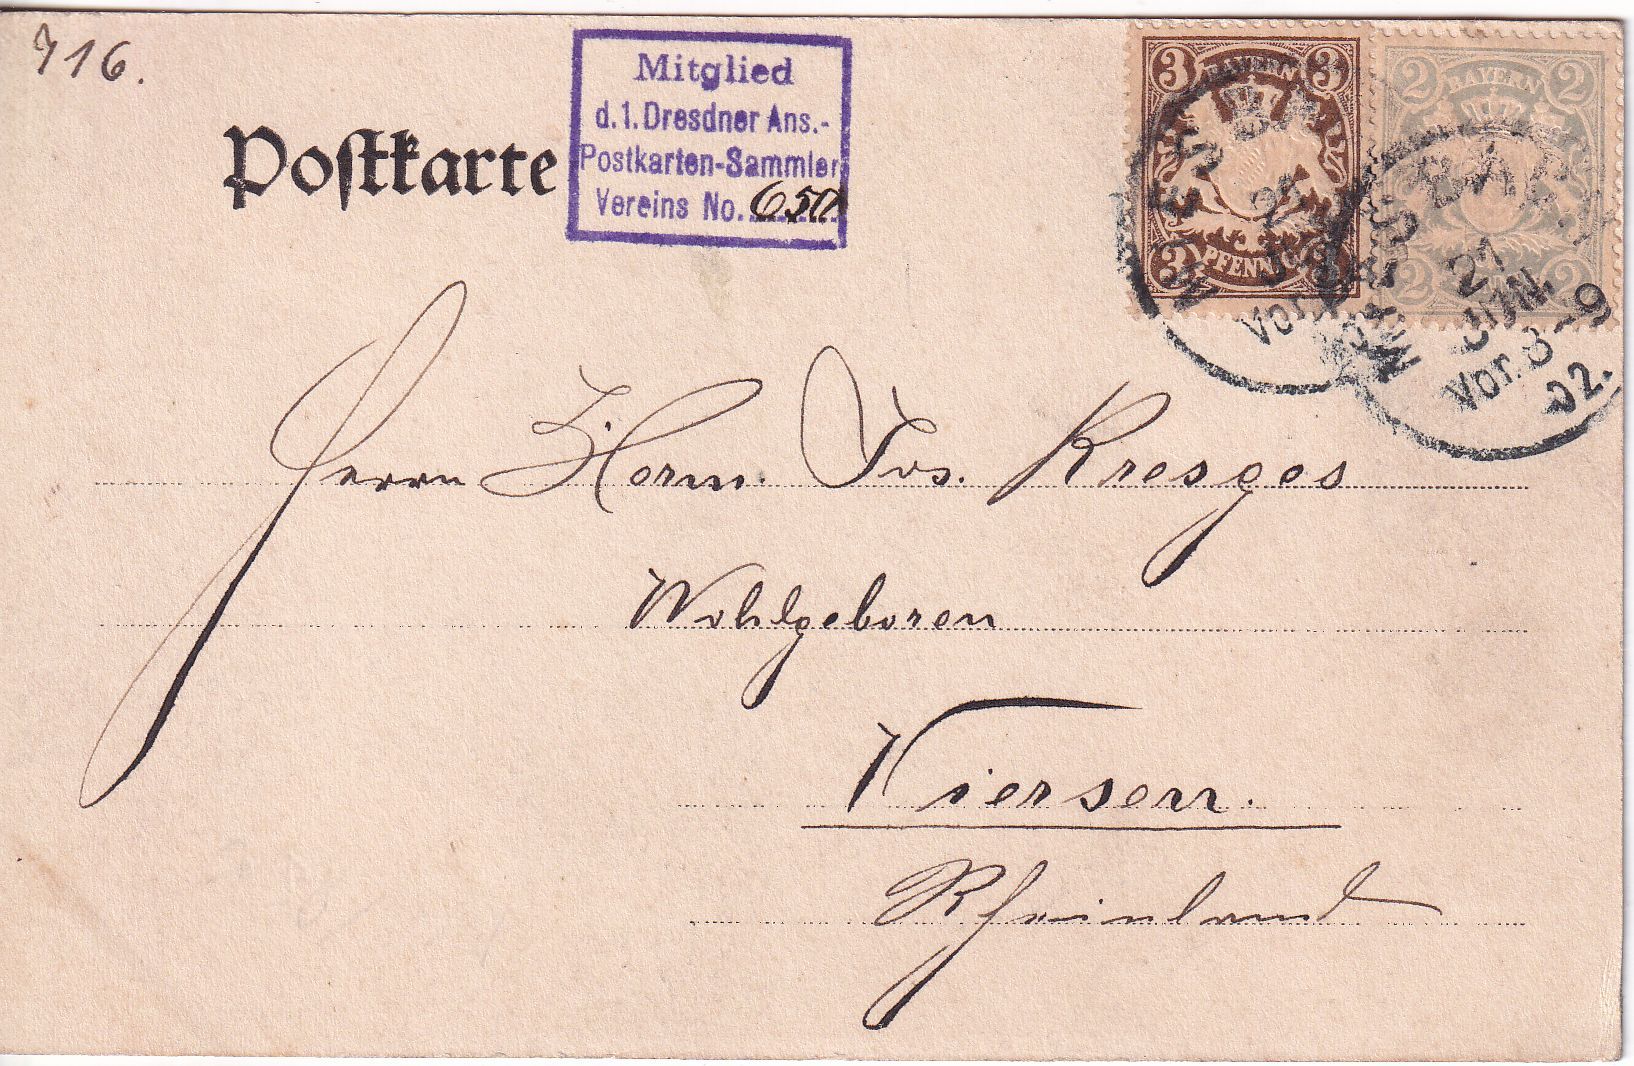 716.
Postkarte
Mitglied
d. 1. Dresdner Ans.-
Postkarten-Sammler
Vereins No. 650
3 BAYERN 3
3 PFENNIG
2 BAYERN 2
2 2
21
JUN.
Vor. 8-9
02.
Vor.
Herrn Herm. Jos. Kresges
Wohlgeboren
Viersen.
Rheinland